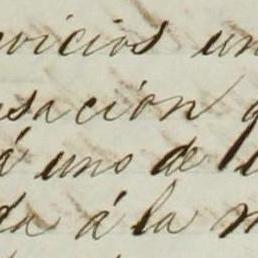 rvicios un
sación q
á uno de l
da á la m